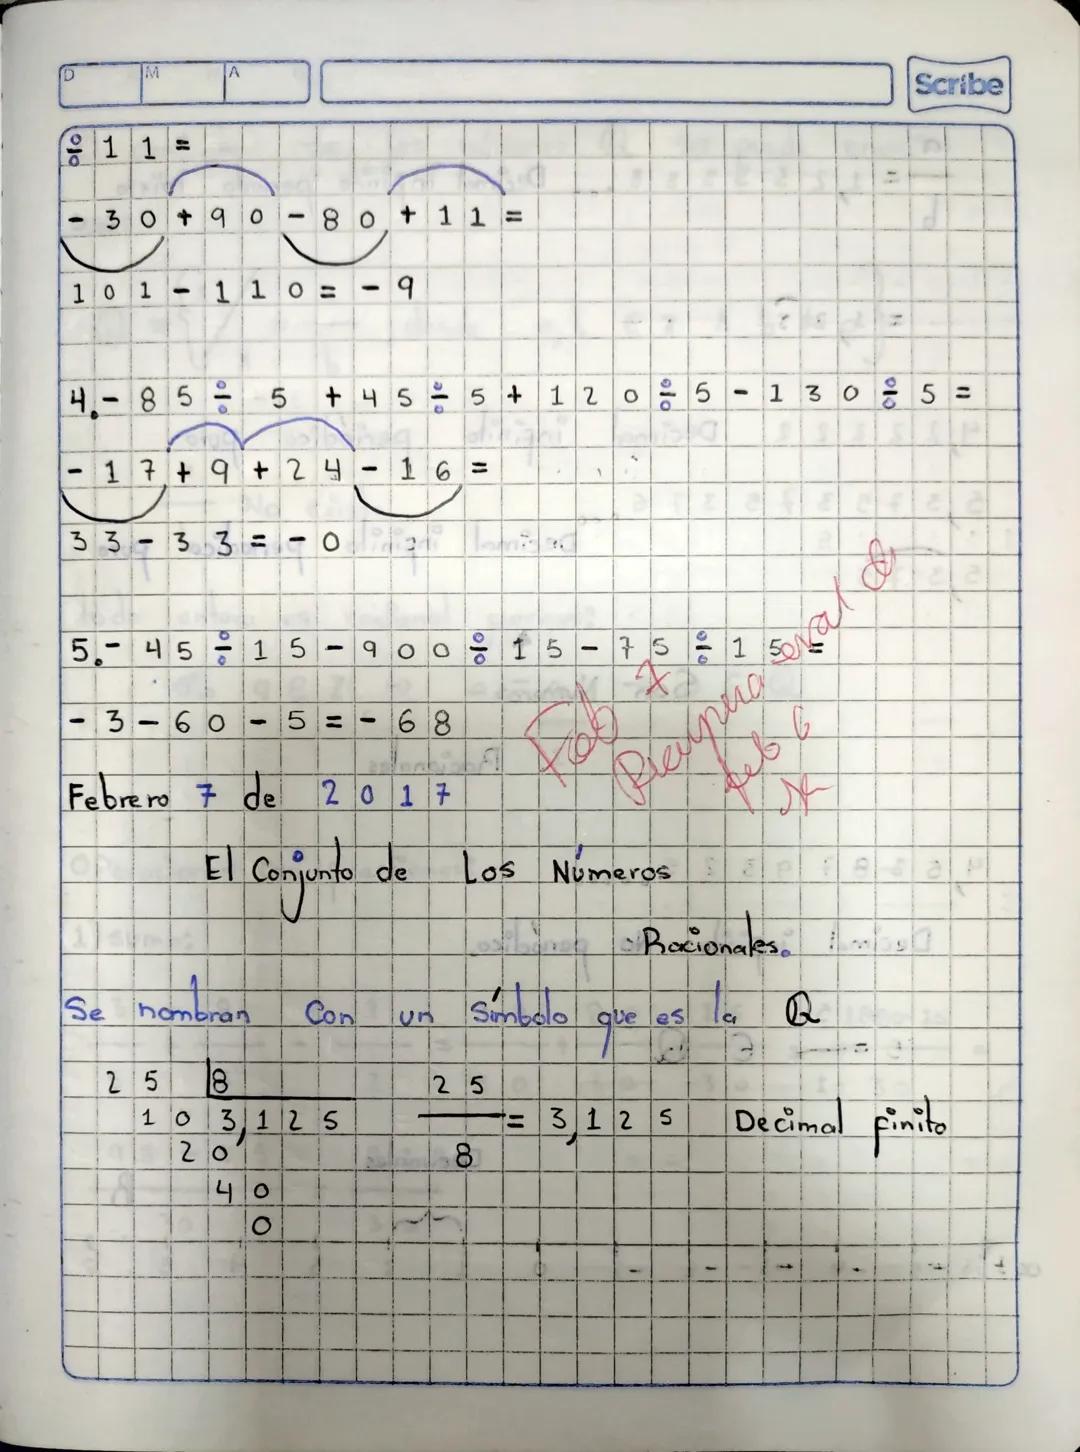 D M A
Scribe
÷ 11 =
- 30 + 90 - 80 + 11 =
101 - 110 = - 9
4.- 85 ÷ 5 + 45 ÷ 5 + 120 ÷ 5 - 130 ÷ 5 =
- 17 + 9 + 24 - 16 =
33 - 33 = - 0
5.- 45 ÷ 15 - 900 ÷ 15 - 75 ÷ 15 =
- 3 - 60 - 5 = - 68
Feb 7
feb 6
Febrero 7 de 2017
El Conjunto de Los Números
Racionales.
Se nombran Con un Símbolo que es la Q
25 8 25
10 3,125 = 3,125 Decimal finito
20 8
40
0